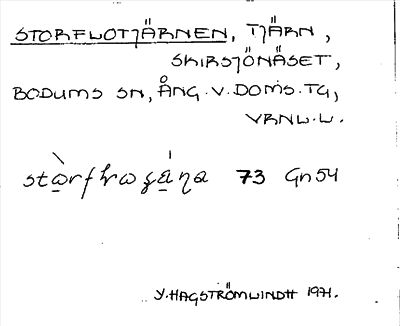 STORFLOTJÄRNEN, TJÄRN,
SKIRSJÖNÄSET,
BODUMS SN, ÅNG. V. DOMS. TG,
VRNL.L.
73 Gn54
Y. HAGSTRÖMLINDH 1971.